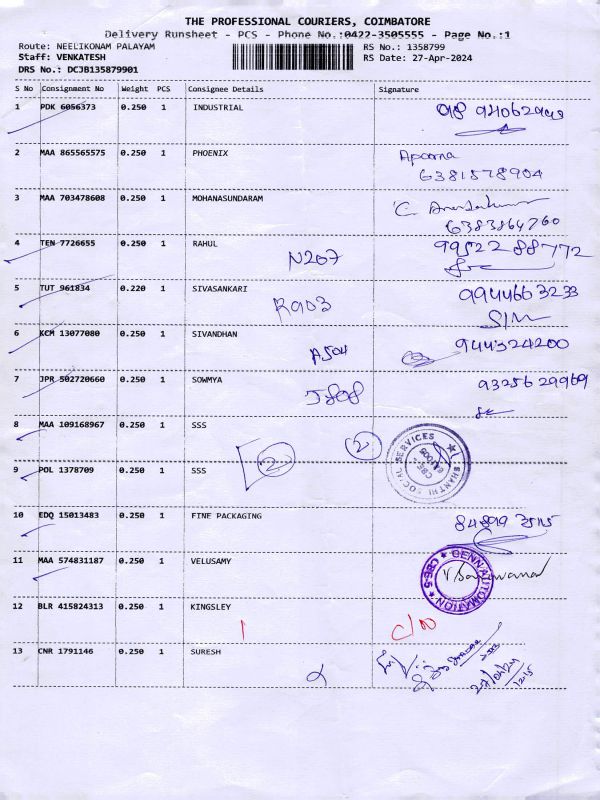 THE PROFESSIONAL COURIERS, COIMBATORE
Delivery Runsheet - PCS - Phone No.:0422-3505555 - Page No.:1
Route: NEELIKONAM PALAYAM
RS No.: 1358799
Staff: VENKATESH
RS Date: 27-Apr-2024
DRS No.: DCJB135879901
S No Consignment No Weight PCS Consignee Details Signature
1 PDK 6056373 0.250 1 INDUSTRIAL
2 MAA 865565575 0.250 1 PHOENIX
Apoorna
6381578904
3 MAA 703478608 0.250 1 MOHANASUNDARAM
6383864760
4 TEN 7726655 0.250 1 RAHUL N207 99522 88772
5 TUT 961834 0.220 1 SIVASANKARI R903 9944663233
6 KCM 13077080 0.250 1 SIVANDHAN A504 944324200
7 JPR 502720660 0.250 1 SOWMYA J808 9325629969
8 MAA 109168967 0.250 1 SSS 2
SHANTHI SOCIAL SERVICES
9 POL 1378709 0.250 1 SSS 2
10 EDQ 15013483 0.250 1 FINE PACKAGING
11 MAA 574831187 0.250 1 VELUSAMY
GENN AUTOMATION
12 BLR 415824313 0.250 1 KINGSLEY C/N
13 CNR 1791146 0.250 1 SURESH
27/04/24
12:15